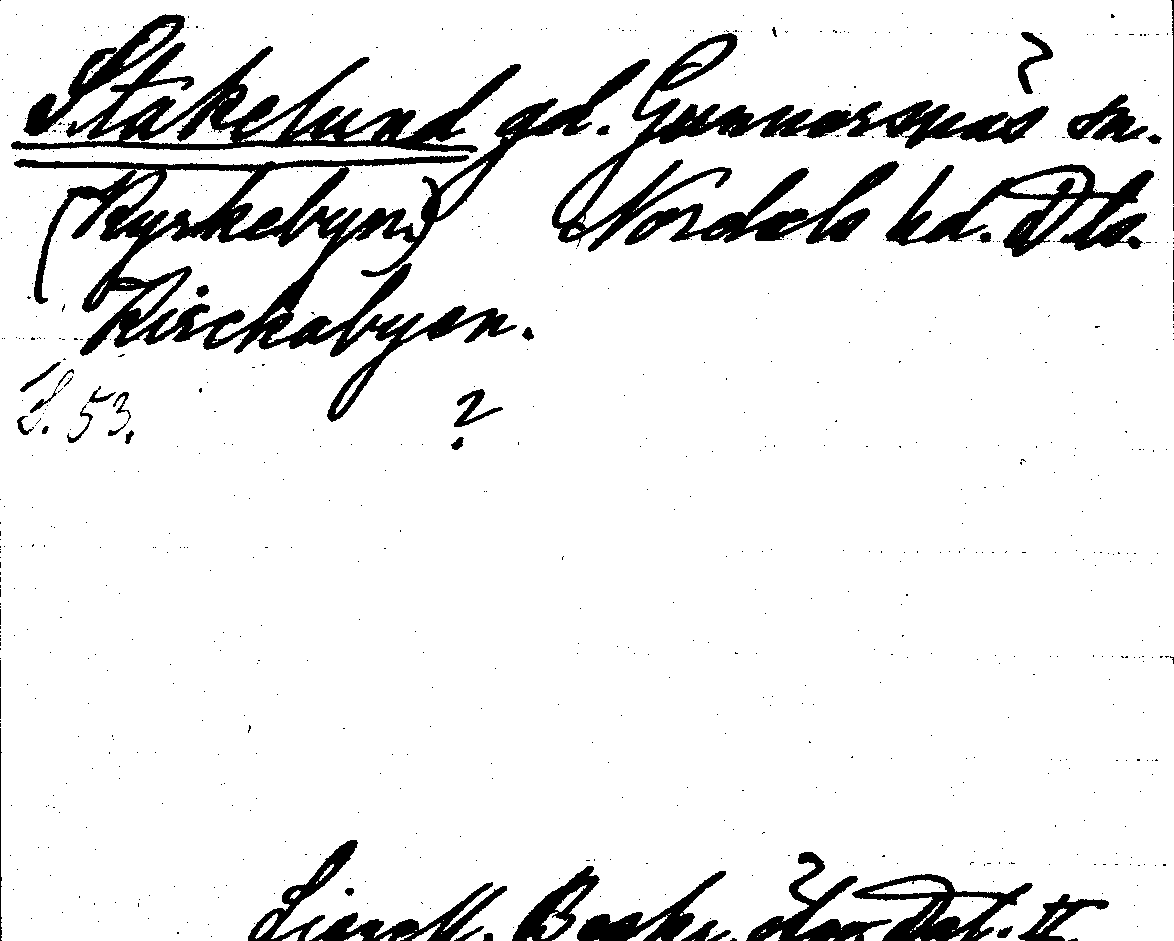 Stakelund gd. Gunnarsnäs sn.
(Kyrkebyn.) Nordals hd. Dls.
Kirckabyen.
L. 53. ?
Lignell. Beskr. öfver Dal. II